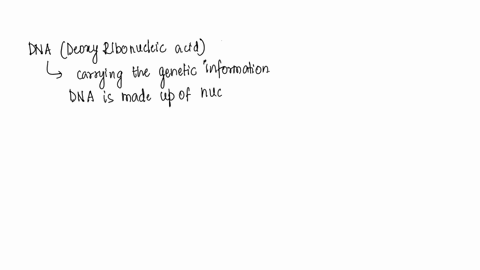 DNA (Deoxy Ribonucleic acid)
↳ carrying the genetic information
DNA is made up of nuc